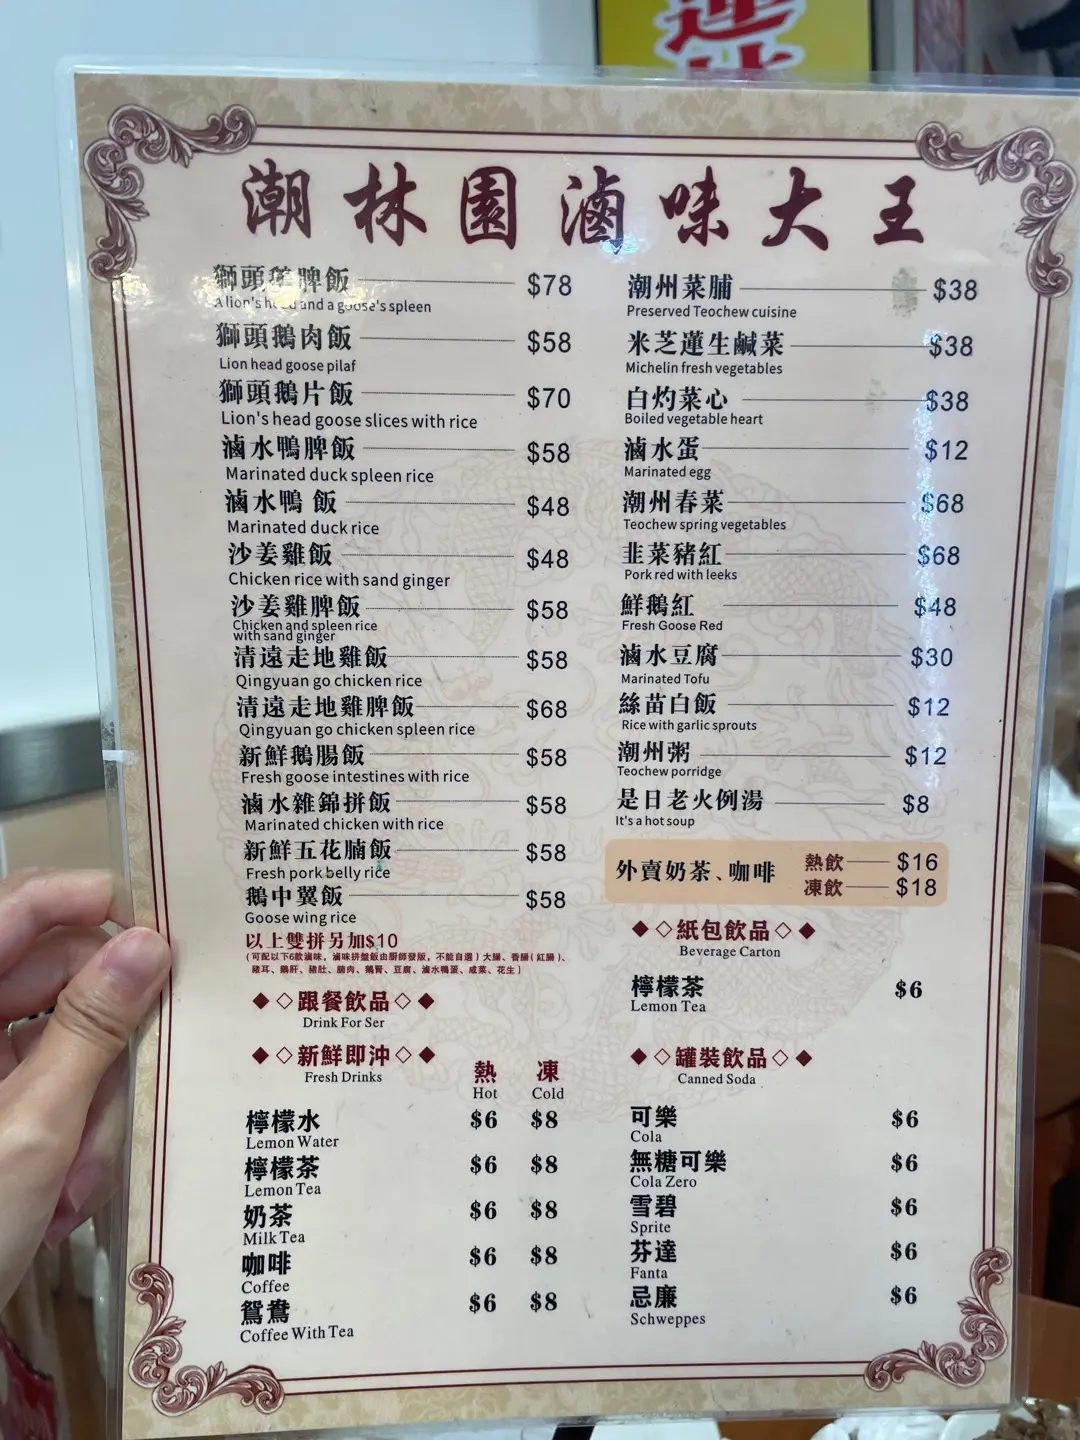 潮林園滷味大王
獅頭鵝脾飯 $78
A lion's head and a goose's spleen
獅頭鵝肉飯 $58
Lion head goose pilaf
獅頭鵝片飯 $70
Lion's head goose slices with rice
滷水鴨脾飯 $58
Marinated duck spleen rice
滷水鴨 飯 $48
Marinated duck rice
沙姜雞飯 $48
Chicken rice with sand ginger
沙姜雞脾飯 $58
Chicken and spleen rice
with sand ginger
清遠走地雞飯 $58
Qingyuan go chicken rice
清遠走地雞脾飯 $68
Qingyuan go chicken spleen rice
新鮮鵝腸飯 $58
Fresh goose intestines with rice
滷水雜錦拼飯 $58
Marinated chicken with rice
新鮮五花腩飯 $58
Fresh pork belly rice
鵝中翼飯 $58
Goose wing rice
以上雙拼另加$10
(可配以下6款滷味，滷味拼盤飯由廚師發版，不能自選)大腸、香腸(紅腸)、
豬耳、鵝肝、豬肚、腩肉、鵝腎、豆腐、滷水鴨蛋、咸菜、花生)
潮州菜脯 $38
Preserved Teochew cuisine
米芝蓮生鹹菜 $38
Michelin fresh vegetables
白灼菜心 $38
Boiled vegetable heart
滷水蛋 $12
Marinated egg
潮州春菜 $68
Teochew spring vegetables
韭菜豬紅 $68
Pork red with leeks
鮮鵝紅 $48
Fresh Goose Red
滷水豆腐 $30
Marinated Tofu
絲苗白飯 $12
Rice with garlic sprouts
潮州粥 $12
Teochew porridge
是日老火例湯 $8
It's a hot soup
外賣奶茶、咖啡 熱飲 $16
凍飲 $18
◆◇跟餐飲品◇◆
Drink For Ser
◆◇新鮮即沖◇◆ 熱 凍
Fresh Drinks Hot Cold
檸檬水 $6 $8
Lemon Water
檸檬茶 $6 $8
Lemon Tea
奶茶 $6 $8
Milk Tea
咖啡 $6 $8
Coffee
鴛鴦 $6 $8
Coffee With Tea
◆◇紙包飲品◇◆
Beverage Carton
檸檬茶 $6
Lemon Tea
◆◇罐裝飲品◇◆
Canned Soda
可樂 $6
Cola
無糖可樂 $6
Cola Zero
雪碧 $6
Sprite
芬達 $6
Fanta
忌廉 $6
Schweppes